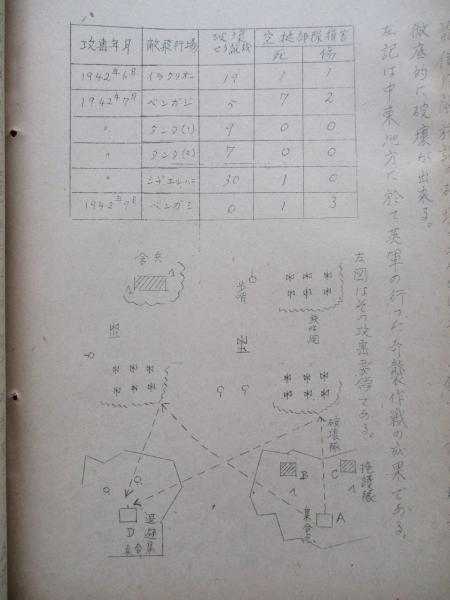 徹底的に破壊が出来る。
左記は中東地方に於て英軍の行った奇襲作戦の成果である。
攻撃年月 敵飛行場 破壊せる敵機 空挺部隊損害 死 傷
1942年6月 イラクリオン 1 1
1942年7月 ベンガジ 5 7 2
〃 タンク(1) 9 0 0
〃 タンク(2) 7 0 0
〃 シヂエルハニ 30 1 0
1942年7月 ベンガジ 0 1 3
左図はその攻撃要領である。
舎兵
歩哨
破壊隊
B
C
掩護隊
A
集合点
D
退避集合点